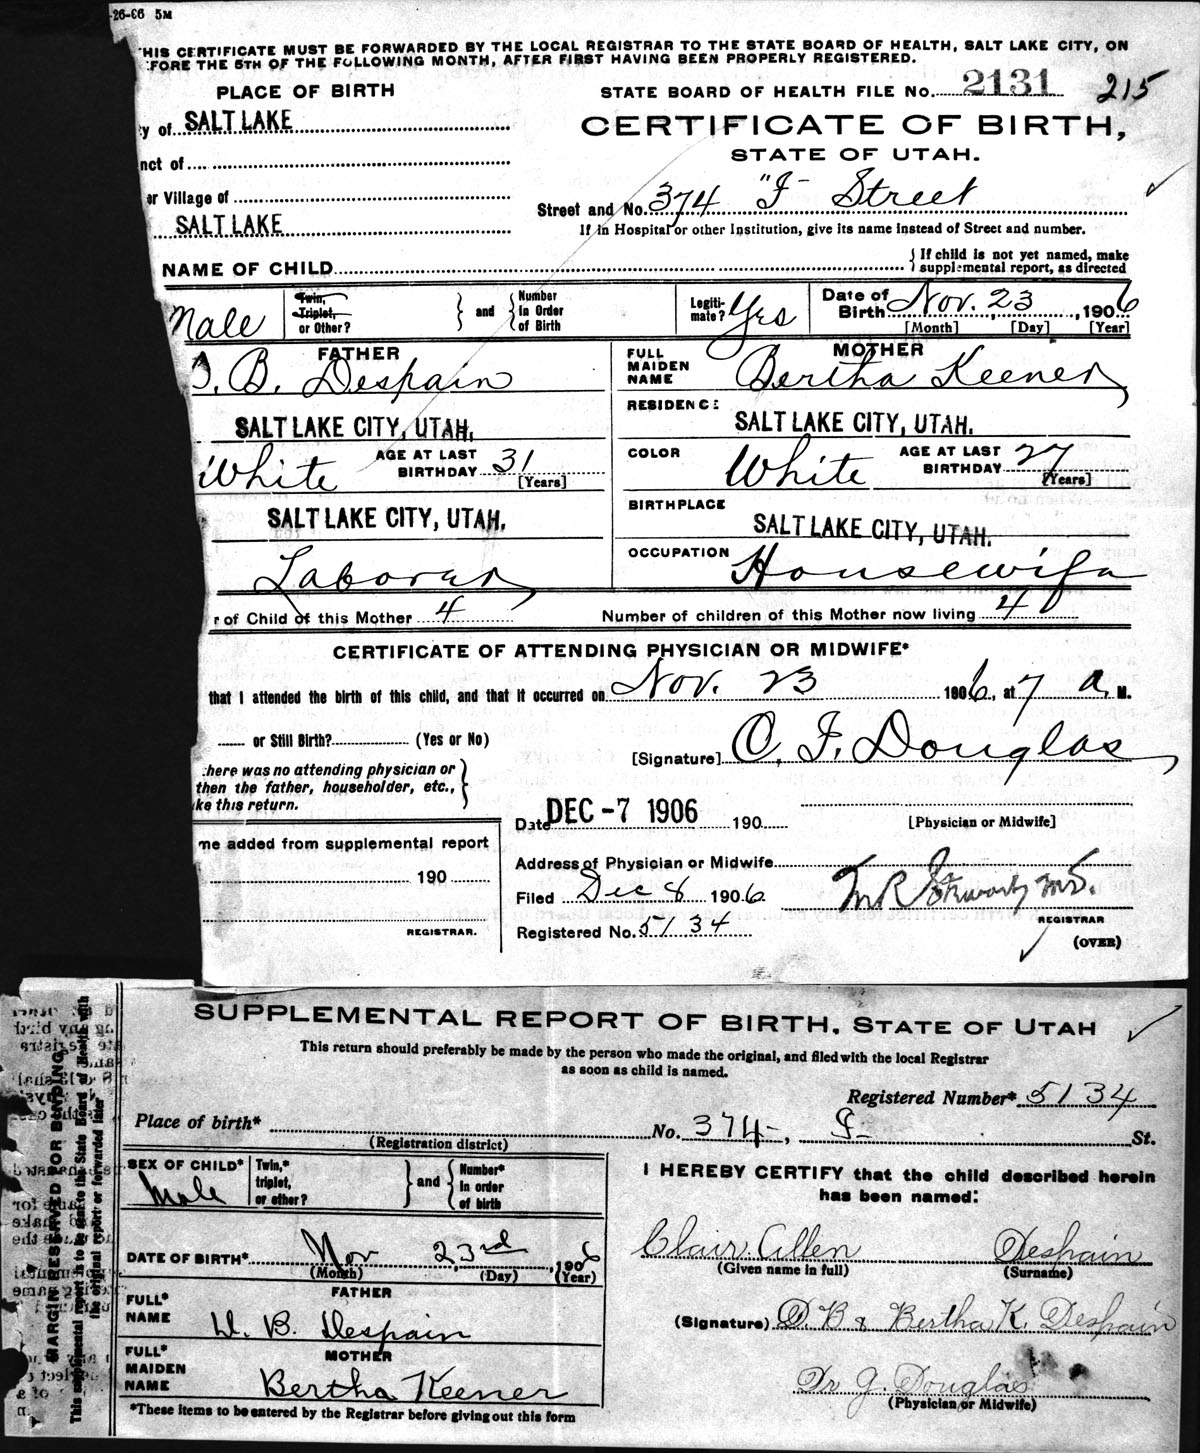 -26-06 5M
HIS CERTIFICATE MUST BE FORWARDED BY THE LOCAL REGISTRAR TO THE STATE BOARD OF HEALTH, SALT LAKE CITY, ON
FORE THE 5TH OF THE FOLLOWING MONTH, AFTER FIRST HAVING BEEN PROPERLY REGISTERED.
PLACE OF BIRTH
STATE BOARD OF HEALTH FILE No. 2131 215
y of SALT LAKE
CERTIFICATE OF BIRTH,
STATE OF UTAH.
nct of
or Village of
Street and No. 374 "I" Street
SALT LAKE
If in Hospital or other Institution, give its name instead of Street and number.
NAME OF CHILD
{If child is not yet named, make
supplemental report, as directed
Male
Twin,
Triplet,
or Other?
} and {
Number
in Order
of Birth
Legiti-
mate? Yes
Date of
Birth Nov. 23, 1906
[Month] [Day] [Year]
FATHER
. B. Despain
FULL
MAIDEN
NAME
MOTHER
Bertha Keener
SALT LAKE CITY, UTAH.
RESIDENCE:
SALT LAKE CITY, UTAH.
White
AGE AT LAST
BIRTHDAY 31
[Years]
COLOR
White
AGE AT LAST
BIRTHDAY 27
[Years]
SALT LAKE CITY, UTAH.
BIRTHPLACE
SALT LAKE CITY, UTAH.
Laborer
OCCUPATION
Housewife
r of Child of this Mother 4
Number of children of this Mother now living 4
CERTIFICATE OF ATTENDING PHYSICIAN OR MIDWIFE*
that I attended the birth of this child, and that it occurred on Nov. 23 1906, at 7 a. M.
or Still Birth? (Yes or No)
[Signature] O. F. Douglas
here was no attending physician or
then the father, householder, etc.,
ke this return.
}
Date DEC -7 1906 190
[Physician or Midwife]
me added from supplemental report
190
REGISTRAR.
Address of Physician or Midwife
Filed Dec 8 1906
Registered No. 5134
M.D.
REGISTRAR
(OVER)
SUPPLEMENTAL REPORT OF BIRTH, STATE OF UTAH
This return should preferably be made by the person who made the original, and filed with the local Registrar
as soon as child is named.
Registered Number* 5134
Place of birth* No. 374, I St.
(Registration district)
SEX OF CHILD*
Male
Twin,*
triplet,
or other?
} and {
Number*
in order
of birth
I HEREBY CERTIFY that the child described herein
has been named:
DATE OF BIRTH* Nov 23rd, 1906
(Month) (Day) (Year)
Clair Allen Despain
(Given name in full) (Surname)
FULL*
NAME
FATHER
D. B. Despain
(Signature) D B & Bertha K. Despain
FULL*
MAIDEN
NAME
MOTHER
Bertha Keener
Dr G. Douglas
(Physician or Midwife)
*These items to be entered by the Registrar before giving out this form
MARGIN RESERVED FOR BINDING.
This supplemental report is to be sent to the State Board of Health with
the original report or forwarded later